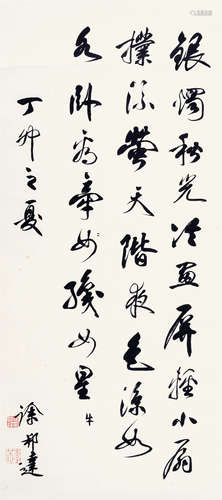 銀燭秋光冷畫屏輕小扇
撲流螢天階夜色涼如
水卧看牽女織女星牛
丁卯之夏
徐邦達